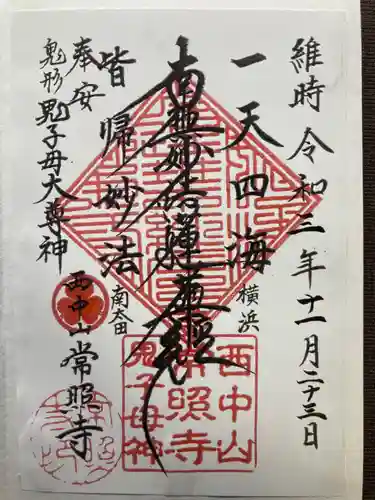 維時 令和三年十一月二十三日
一天四海
横浜
南無妙法蓮華経
皆帰妙法
南太田
奉安
鬼形鬼子母大尊神
西中山 常照寺
西中山
常照寺
鬼子母神